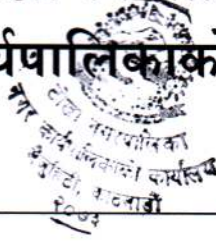 र्यपालिकाको
टोखा नगरपालिका
नगर कार्यपालिकाको कार्यालय
काठमाडौं
२०७३